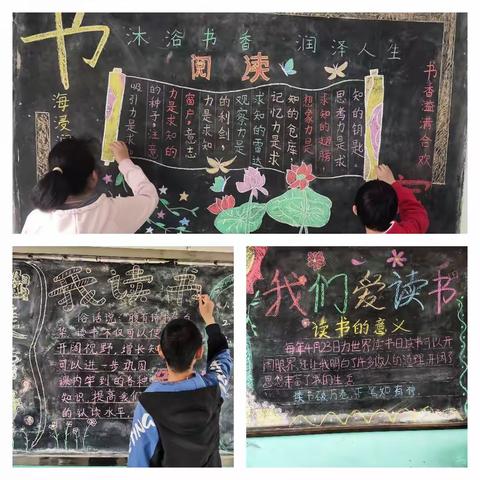 书
沐浴书香 润泽人生
阅读
海漫
吸引力是求
的种子，注意
力是求知的
窗户，意志
力是求知
的利剑，
观察力是
求知的雷达
记忆力是求
知的仓库，
想象力是
求知的翅膀，
思考力是求
知的钥匙
书香溢满合欢
我读书
俗话说：腹有诗书
华，读书不仅可以使
开阔视野，增长知
可以进一步巩固
课内学到的各种
知识，提高
的认读水平
我们爱读书
读书的意义
每年4月23日为世界读书日读书可以开
阔眼界，还让我明白了许多做人的道理，开阔了
读书破万卷，下笔如有神。